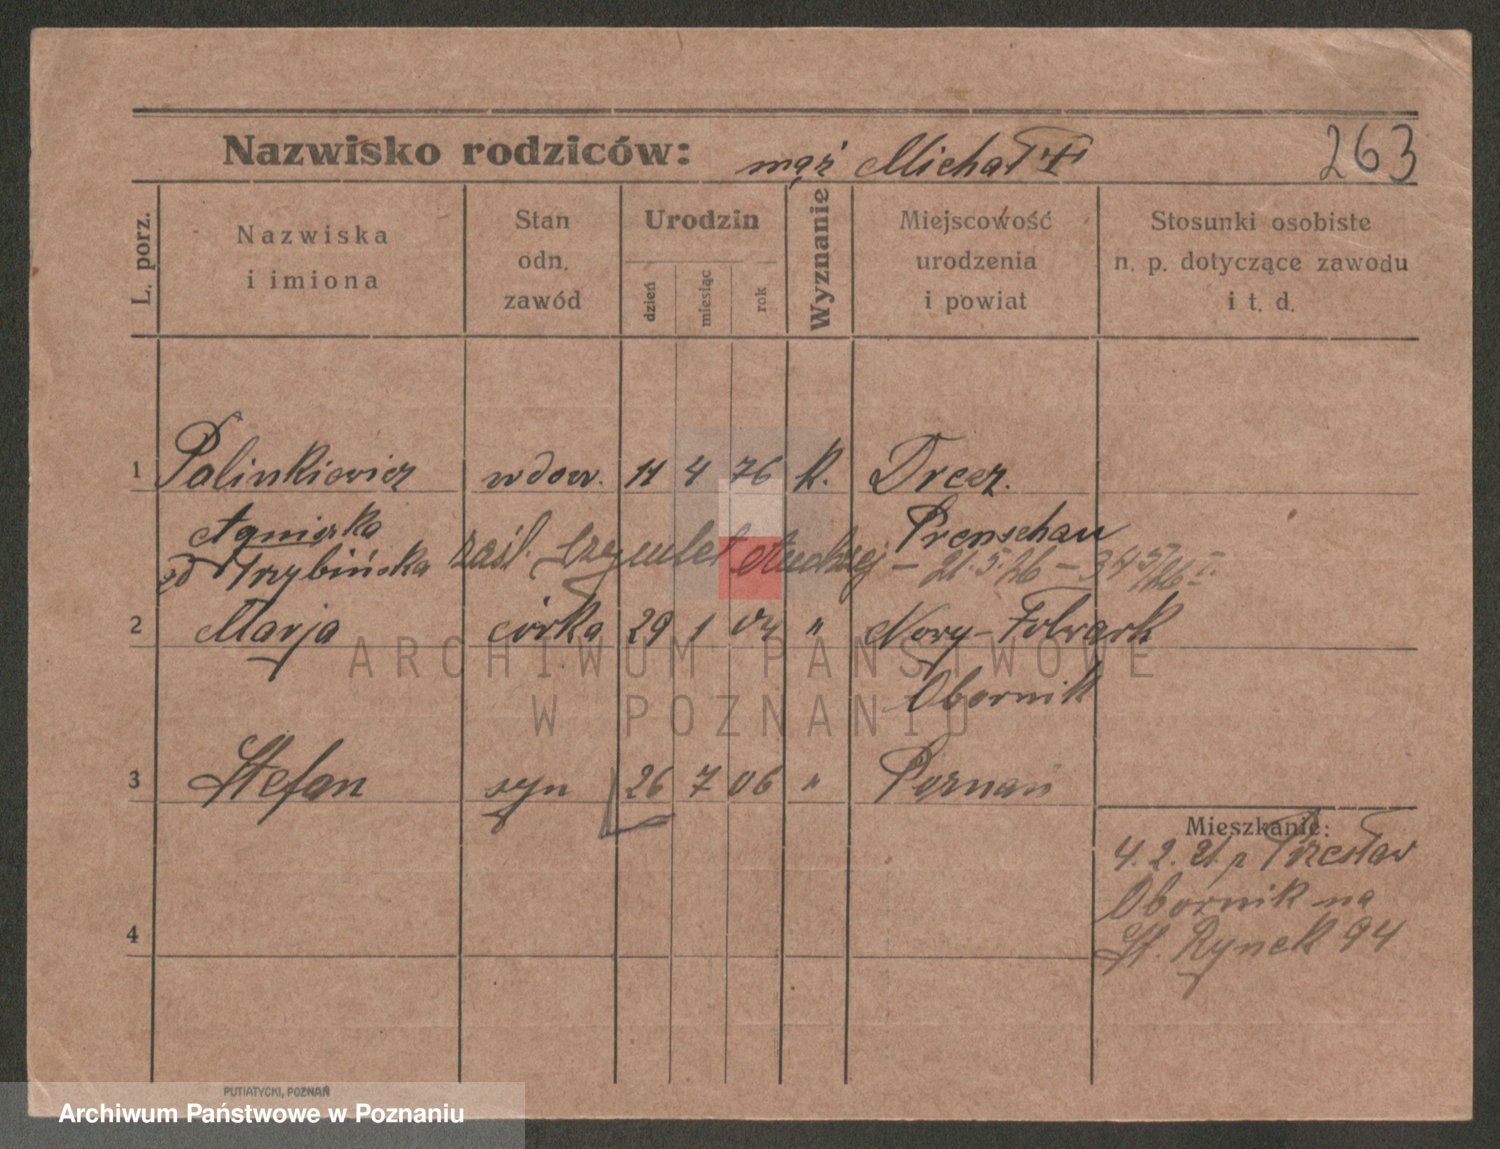 Nazwisko rodziców: mąż Michał 263
L. porz.
Nazwiska
i imiona
Stan
odn.
zawód
Urodzin
dzień
miesiąc
rok
Wyznanie
Miejscowość
urodzenia
i powiat
Stosunki osobiste
n. p. dotyczące zawodu
i t. d.
1 Palinkiewicz wdow. 11 4 76 k. Drcez.
Agnieszka Prenschau
zd Trzybińska zaśl. Szymulet Andrzej – 21.5.26 – 345/26 I.
2 Marja córka 29 1 04 " Nowy-Folwark
Obornik
3 Stefan syn 26 7 06 " Poznań
Mieszkanie:
4. 2. 21. z Wrestaw
Obornik na
St. Rynek 94
4
ARCHIWUM PAŃSTWOWE
W POZNANIU
PUTIATYCKI, POZNAŃ
Archiwum Państwowe w Poznaniu